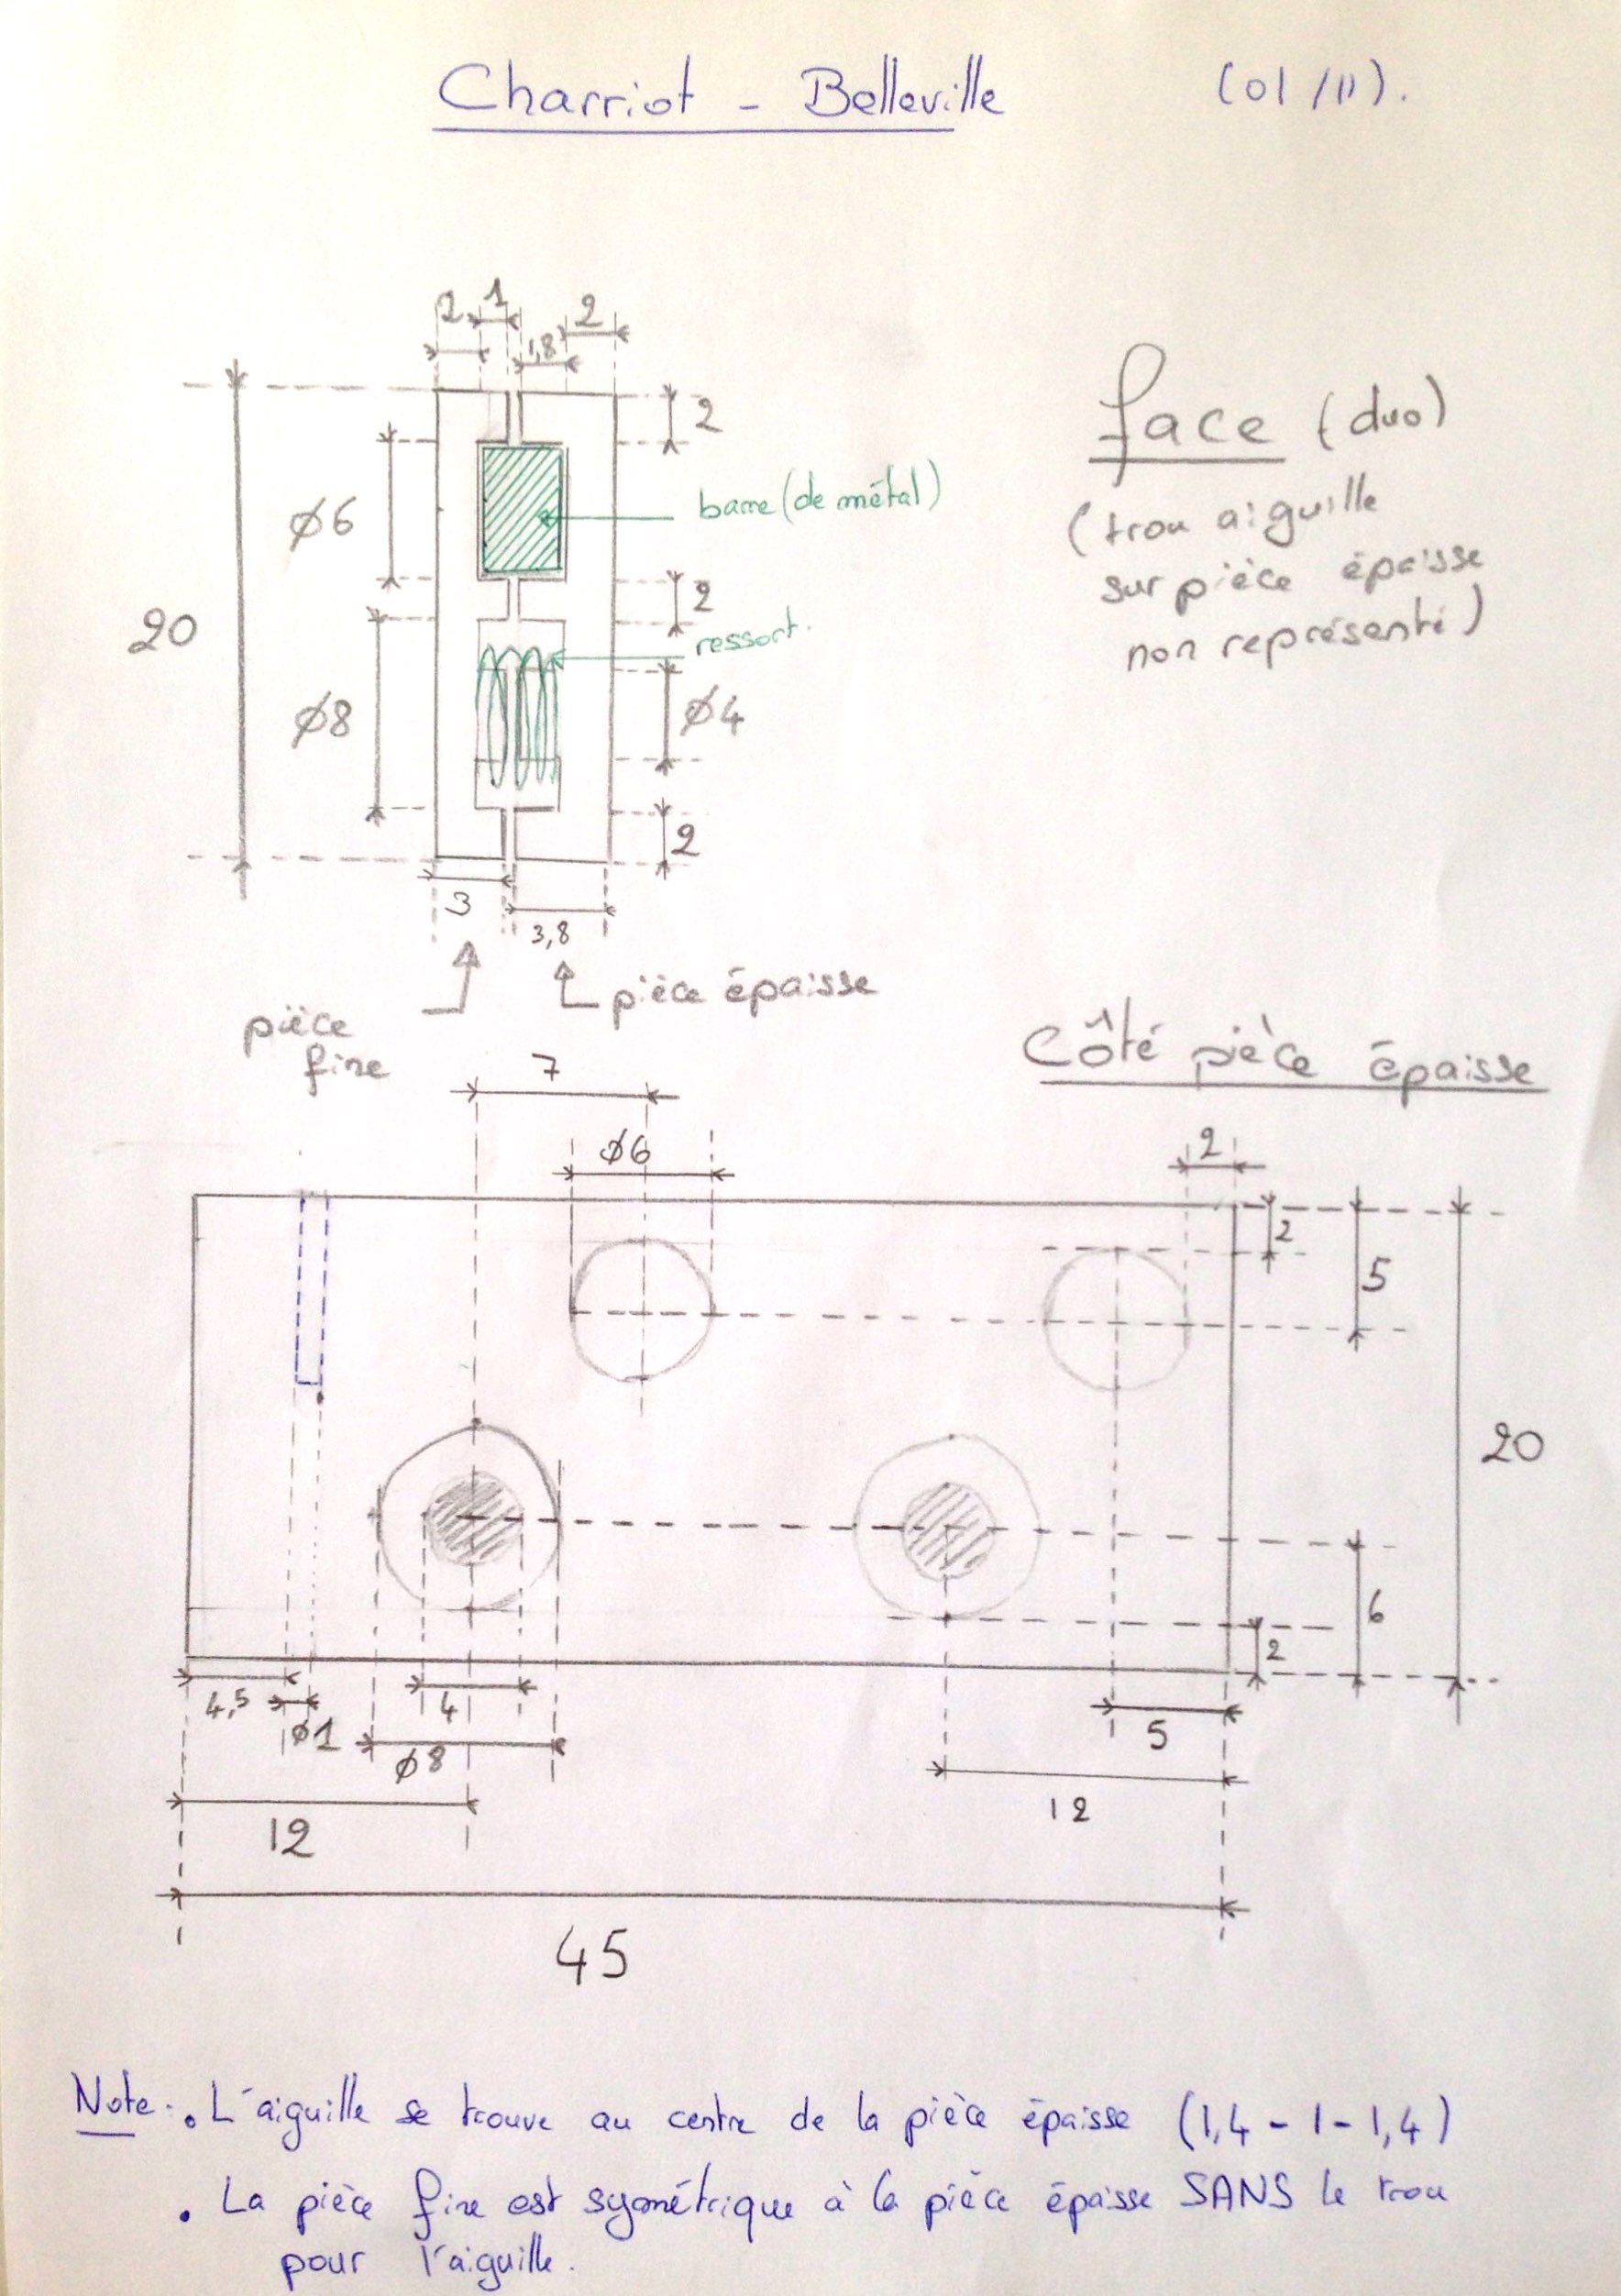 Charriot - Belleville (01/11).
2 1 2
1,8
2
face (duo)
(trou aiguille
sur pièce épaisse
non représenté)
Ø6
barre (de métal)
2
20
ressort.
Ø8
Ø4
2
3
3,8
pièce épaisse
pièce
fine
Côté pièce épaisse
7
Ø6
2
2
5
20
6
2
4,5
Ø1
4
Ø8
5
12
12
45
Note: . L'aiguille se trouve au centre de la pièce épaisse (1,4 - 1 - 1,4)
. La pièce fine est symétrique à la pièce épaisse SANS le trou
pour l'aiguille.